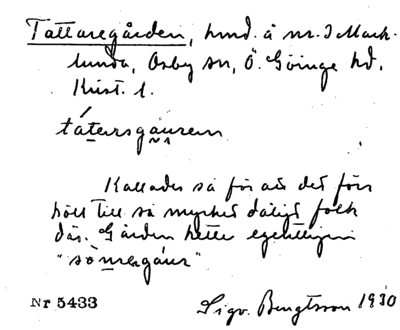 Tattaregården, hmd. å nr. 3 Mark-
lunda, Osby sn, Ö. Göinge hd.
Krist. l.
tátarsgåuren
Kallades så för att det förr
höll till så mycket dåligt folk
där. Gården hette egentligen
"sönnergáur"
Nr 5433 Sigv. Bengtsson 1930